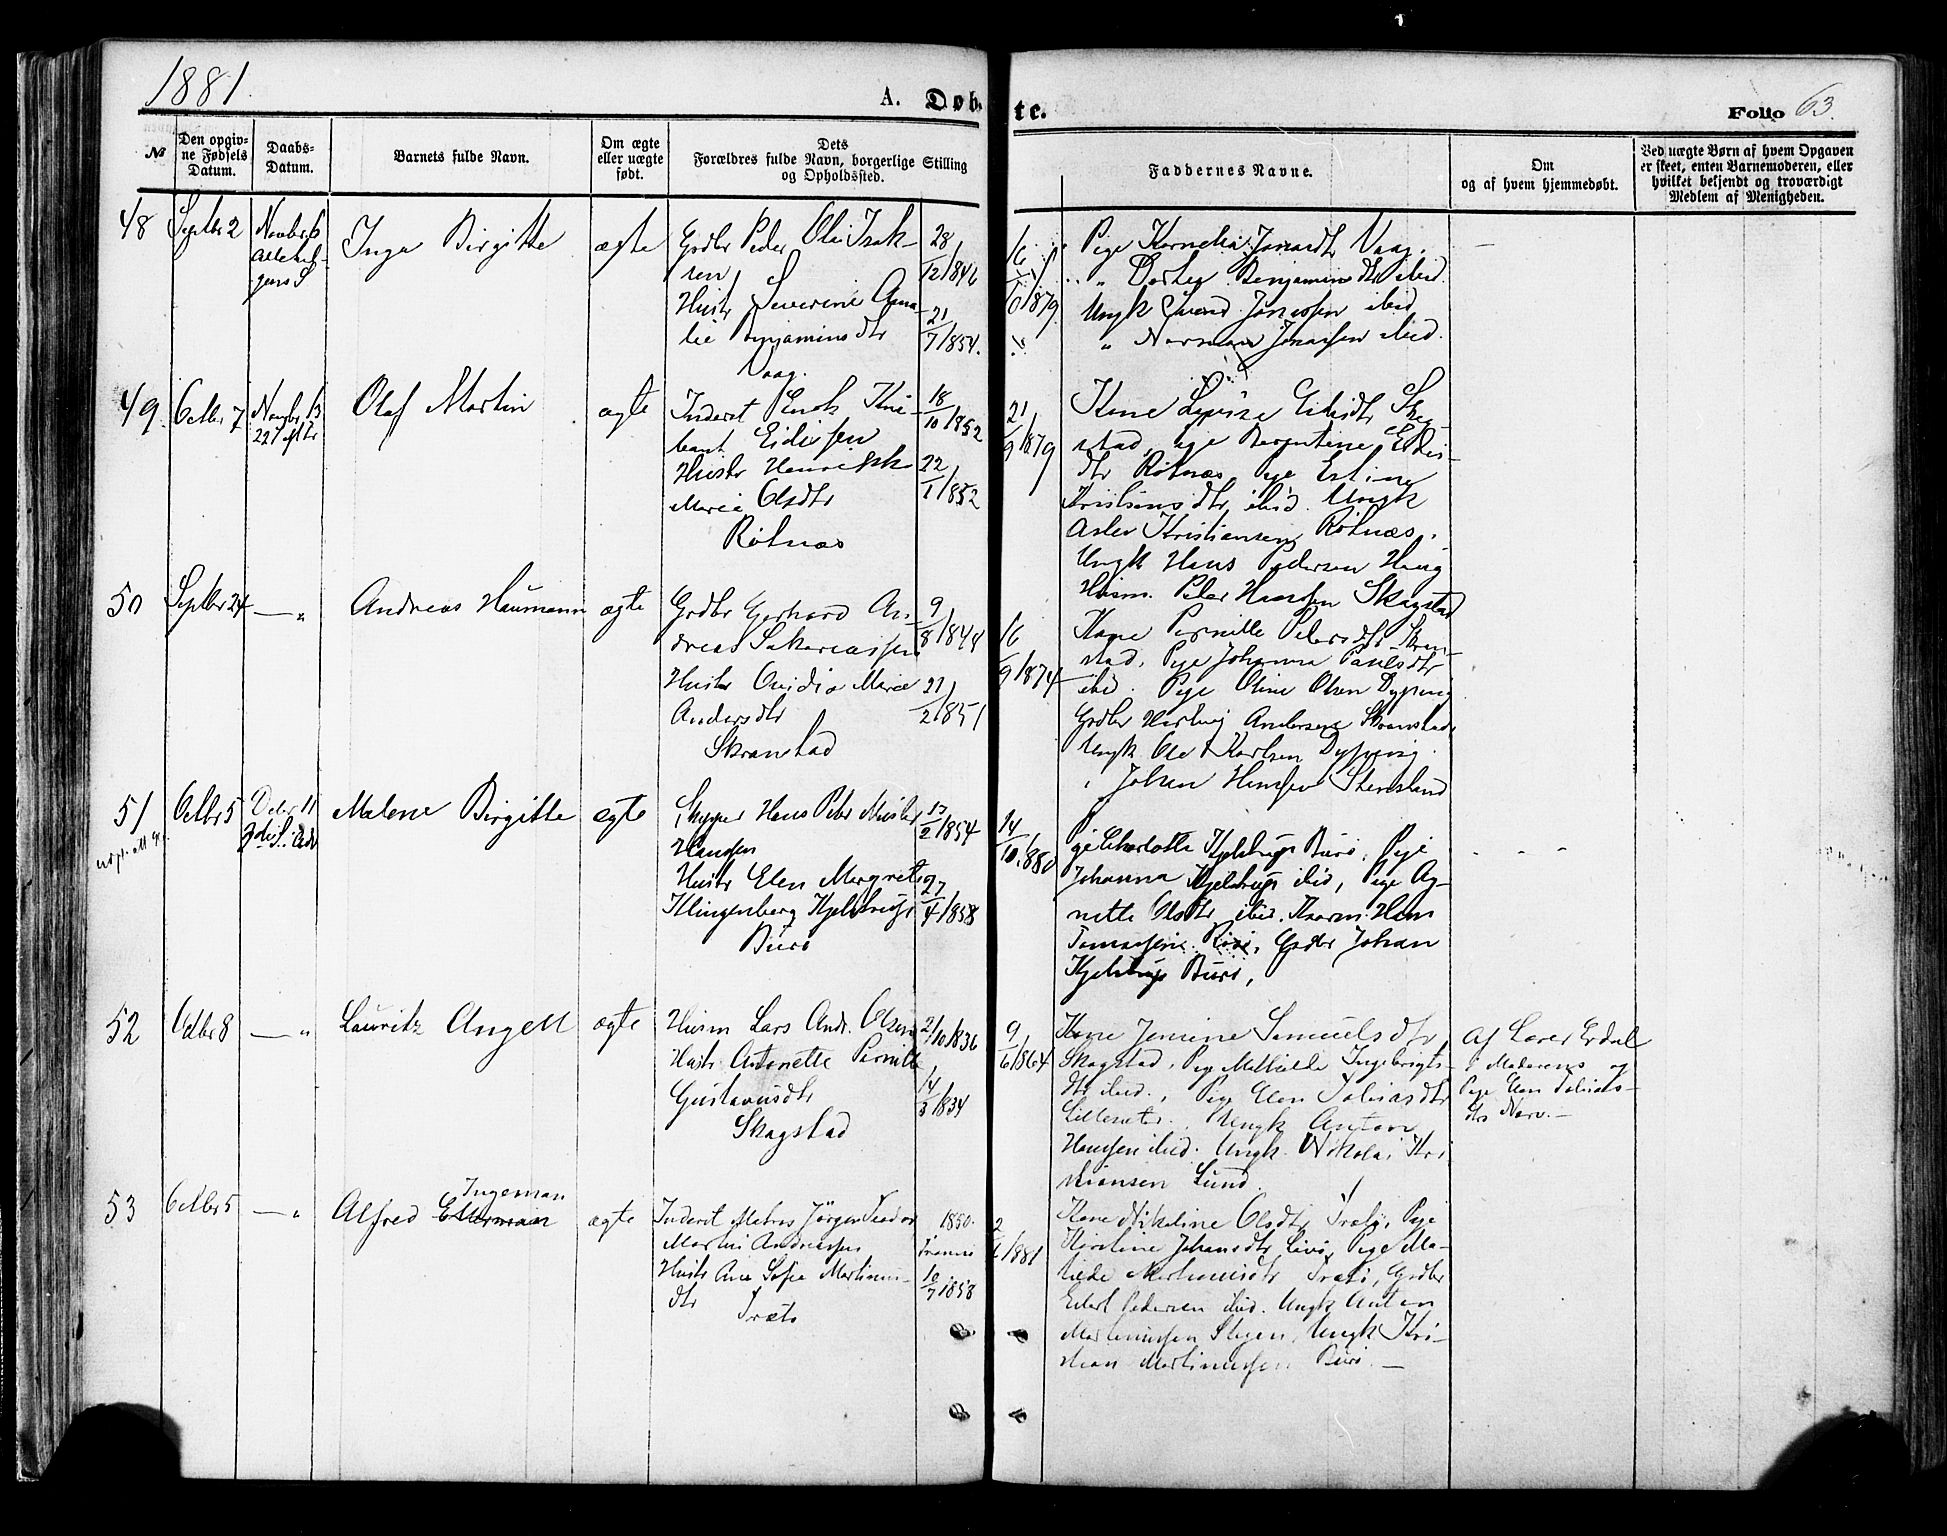 1881.
A. Døb-
te.
Folio 63.
№
Den opgiv-
ne Fødsels
Datum.
Daabs-
Datum.
Barnets fulde Navn.
Om ægte
eller uægte
født.
Dets
Forældres fulde Navn, borgerlige Stilling
og Opholdssted.
Faddernes Navne.
Om
og af hvem hjemmedøbt.
Ved uægte Børn af hvem Opgaven
er skeet, enten Barnemoderen, eller
hvilket bekjendt og troværdigt
Medlem af Menigheden.
48
Septbr 2
Novbr 6
Allehel-
gens S
Inga Birgitte
ægte
Grdbr Peder Ole Isak-
sen
Hustr Severine Ama-
lie Benjaminsdtr
Vaag.
28/12 1846
21/7 1854.
Pige Kornelia Jonasdtr Vaag.
" Dorthea Benjaminsdtr ibid.
Ungk Svend Jonassen ibid
" Norman Jonassen ibid.
49
Octbr 7
Novbr 13
22 S eft Tr
Olaf Martin
ægte
Inderst Enok
Eidissen
Hustr Henrikke
Marie Olsdtr
Røtnæs
18/10 1852
22/1 1852
21/9 1879
Kone Lovise Eidisdtr Skag-
stad, Pige Berntine Eidis-
dtr Røtnæs Pige Erline
Kristensdtr ibid. Ungk
Asler Kristiansen Røtnæs.
Ungk Hans Pedersen Haug
Husm. Peter Hansen Skagstad
50
Septbr 24
— "
Andreas Haumann
ægte
Grdbr Gerhard An-
dreas Sakariassen
Hustr Ovidia Marie
Andersdtr
Skranstad
9/8 1844
21/2 1851
16/9 1874
Kone Pernille Petersdtr Skran-
stad, Pige Johanna Paulsdtr
ibid. Pige Oline Olsen Dyping
Grdbr Hartvig Andersen Skranstad
Ungk Ole Karlsen Dyping.
" Johan Hansen Stensland
51
Octbr 5
Decbr 11
3die S. i Adv
Malene Birgitte
ægte
Skipper Hans Peter
Hansen
Hustr Elen Margrete
Klingenberg Kjelstrup
Burø
13/2 1854
27/4 1858
14/10 1880
Pige Charlotte Kjelstrup Burø, Pige
Johanna Kjelstrup ibid, Pige Ag-
nette Olsdtr ibid. Hans
Tomassen, Grdbr Johan
Kjelstrup Burø,
- - -
52
Octbr 8
— "
Lauritz Angell
ægte
Husm Lars Andr. Olsen
Hustr Antonette Pernille
Gustavusdtr
Skagstad
2/10 1836
14/3 1834
9/6 1864
Kone Jensine Samuelsdtr
Skagstad, Pige Mathilde Ingebrigts-
dtr ibid., Pige Elen Tobiasdtr
Ungk Anton
Hansen ibid. Ungk Nikolai Kri-
stiansen Lund.
Af Lærer Erdal
i Moderens og
Pige Elen Tobias-
dtrs Nærv.—
53
Octbr 5
— "
Alfred Ingeman
ægte
Inderst Matias Jørgen
Martin Andreassen
Hustr Ane Sofie Martinus-
dtr Trætø
1850.
Tromsø
10/7 1858
Kone Nikoline Olsdtr Trætø, Pige
Kirstine Johansdtr, Pige Ma-
tilde Martinusdtr Trætø, Grdbr
Edert Pedersen ibid. Ungk Anton
Martinussen Stegen, Ungk Kri-
stian Martinussen Burø.—